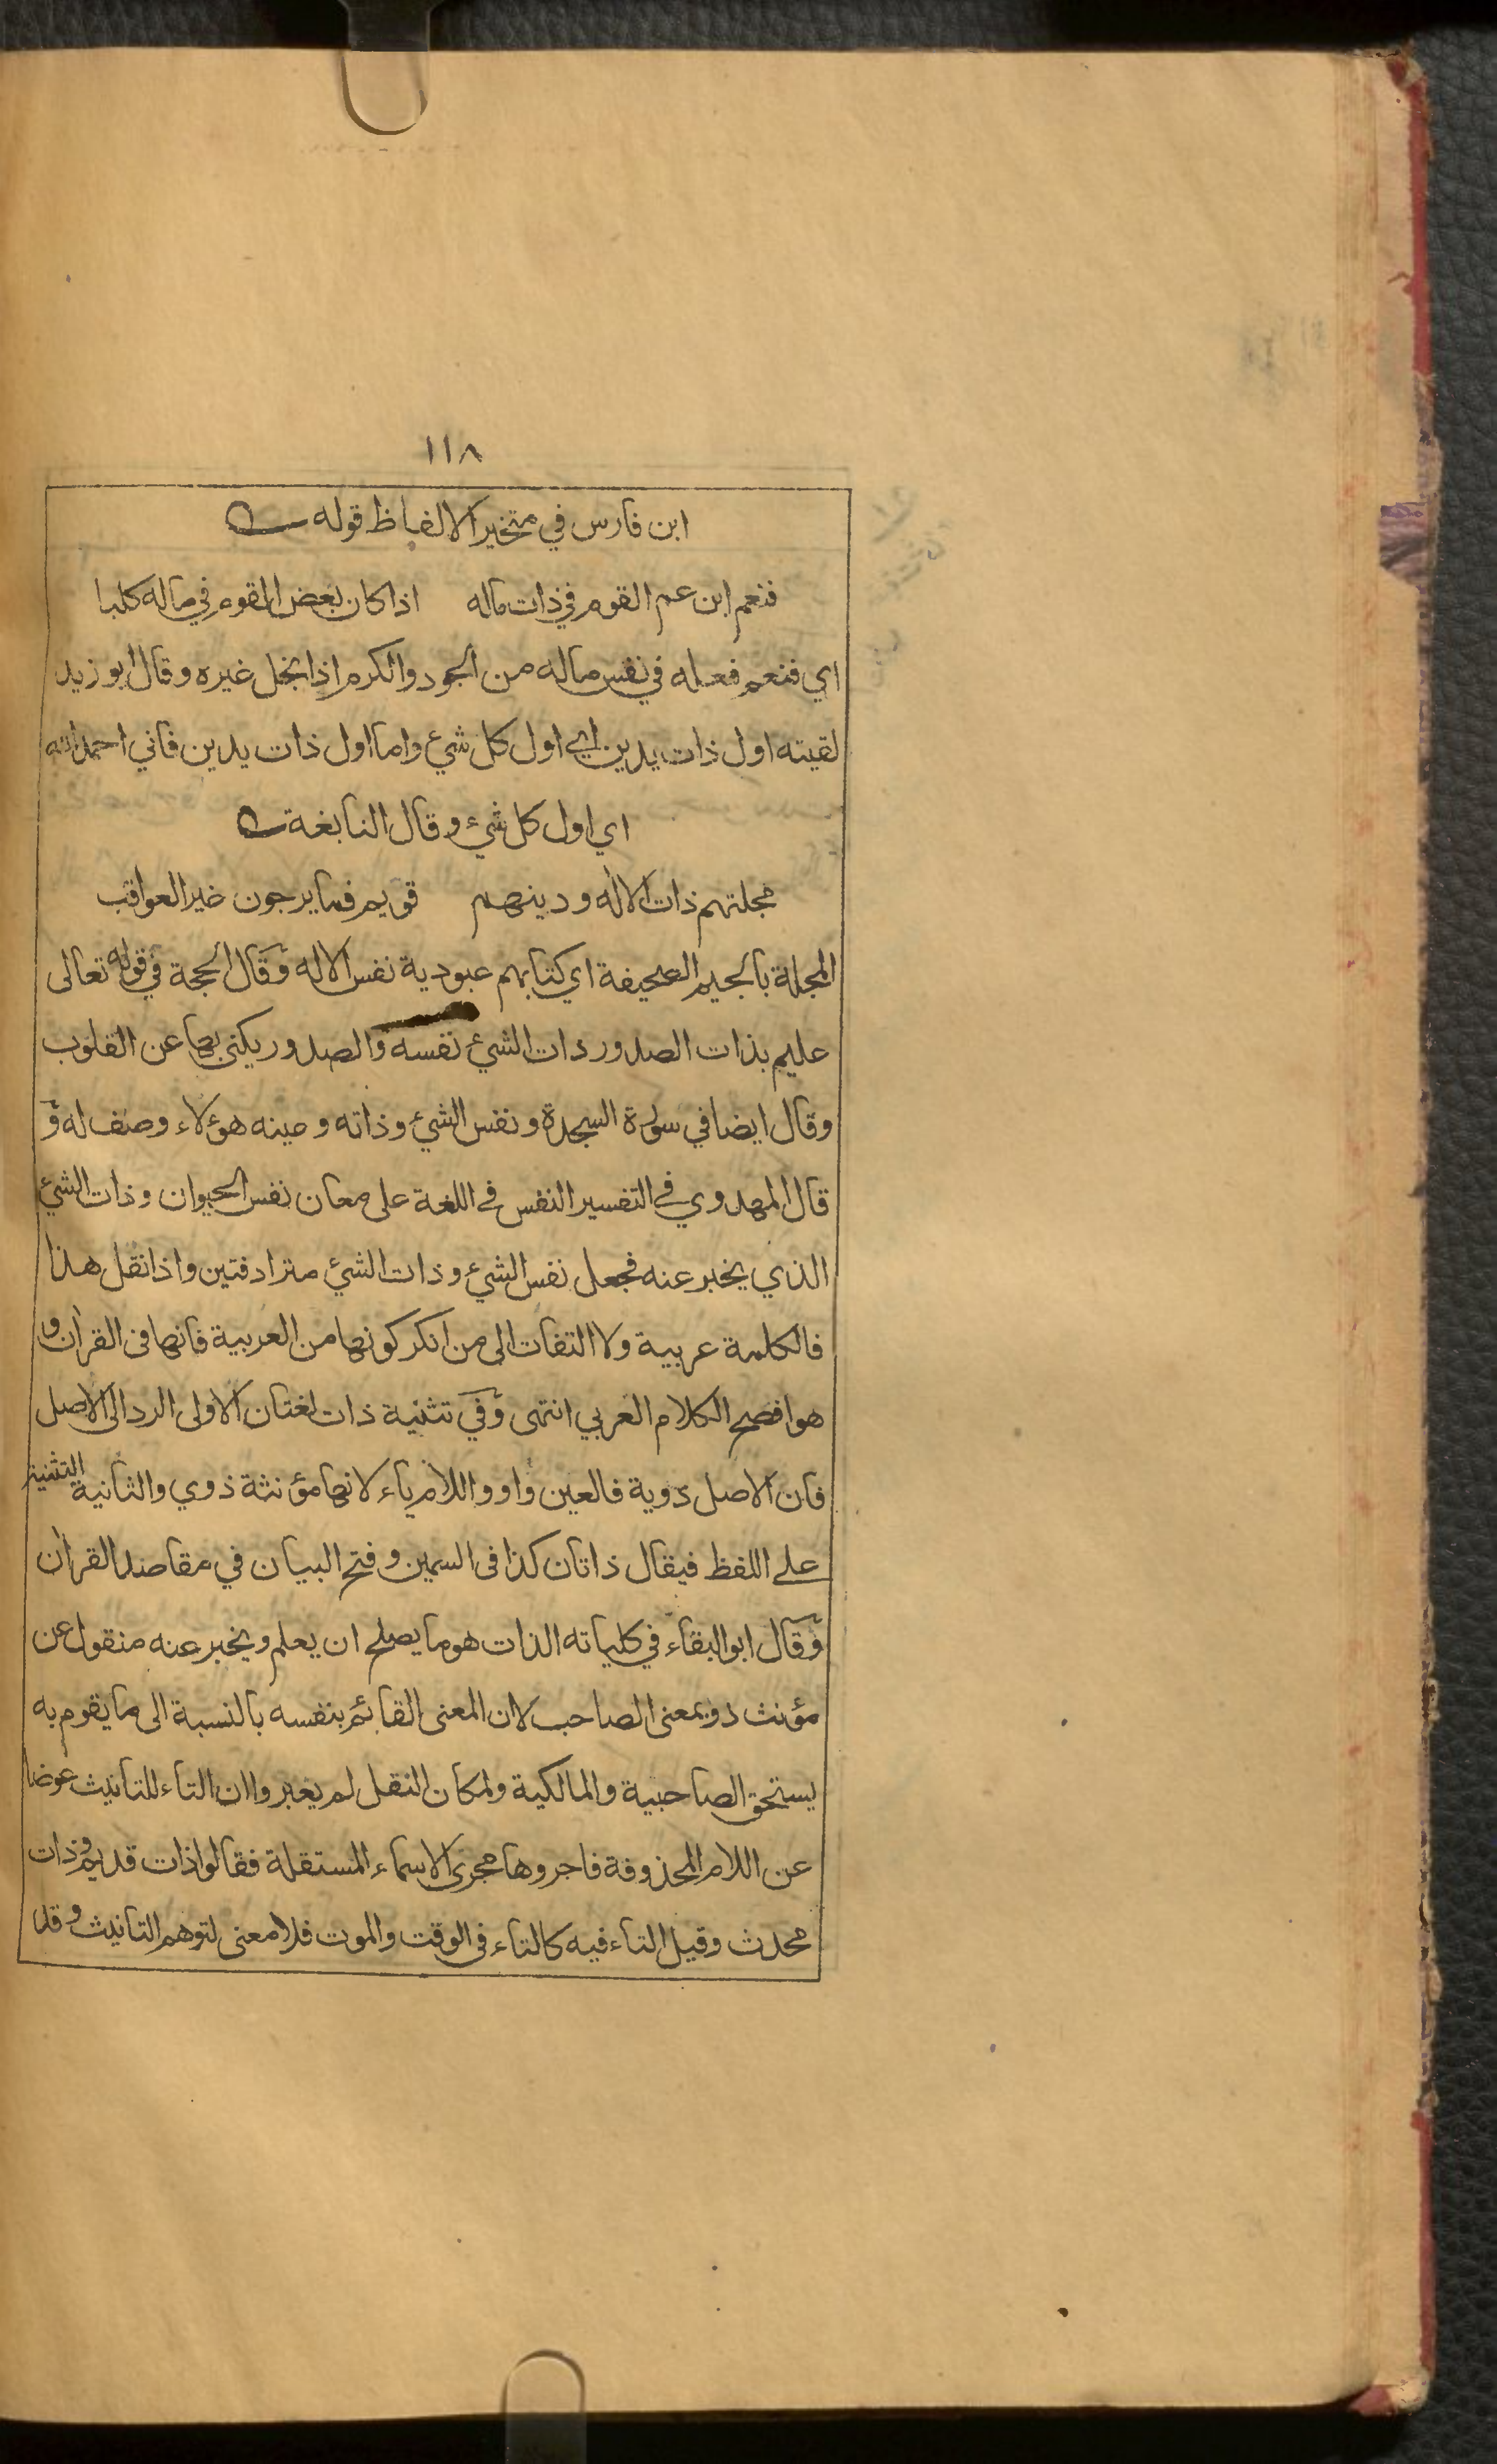 ١١٨
ابن فارس في متخير الالفاظ قوله
فنعم ابن عم القوم في ذات ماله اذا كان بعض القوم في ماله كلبا
اي فنعم فعله في نفس ماله من الجود والكرم اذا بخل غيره وقال ابو زيد
لقيته اول ذات يدين اي اول كل شيء واما اول ذات يدين فاني احمد الله
اي اول كل شيء وقال النابغة
مجلتهم ذات الاله ودينهم قويم فما يرجون خير العواقب
المجلة بالجيم الصحيفة اي كتابهم عبودية نفس الاله وقال الحجة في قوله تعالى
عليم بذات الصدور ذات الشئ نفسه والصدور يكنى بها عن القلوب
وقال ايضا في سورة السجدة ونفس الشئ وذاته وعينه هؤلاء وصف له و
قال المهدوي في التفسير النفس في اللغة على معان نفس الحيوان وذات الشئ
الذي يخبر عنه فجعل نفس الشئ وذات الشئ مترادفتين واذا نقل هذا
فالكلمة عربية ولا التفات الى من انكر كونها من العربية فانها في القرآن و
هو افصح الكلام العربي انتهى وفي تثنية ذات لغتان الاولى الرد الى الاصل
فان الاصل ذوية فالعين واو واللام ياء لانها مؤنثة ذوي والثانية التثنية
على اللفظ فيقال ذاتان كذا في السمين وفتح البيان في مقاصد القرآن
وقال ابو البقاء في كلياته الذات هو ما يصلح ان يعلم ويخبر عنه منقول عن
مؤنث ذو بمعنى الصاحب لان المعنى القائم بنفسه بالنسبة الى ما يقوم به
يستحق الصاحبية والمالكية ولمكان النقل لم يعبروا ان التاء للتانيث عوضا
عن اللام المحذوفة فاجروها مجرى الاسماء المستقلة فقالوا ذات قديم وذات
محدث وقيل التاء فيه كالتاء في الوقت والموت فلا معنى لتوهم التانيث وقد